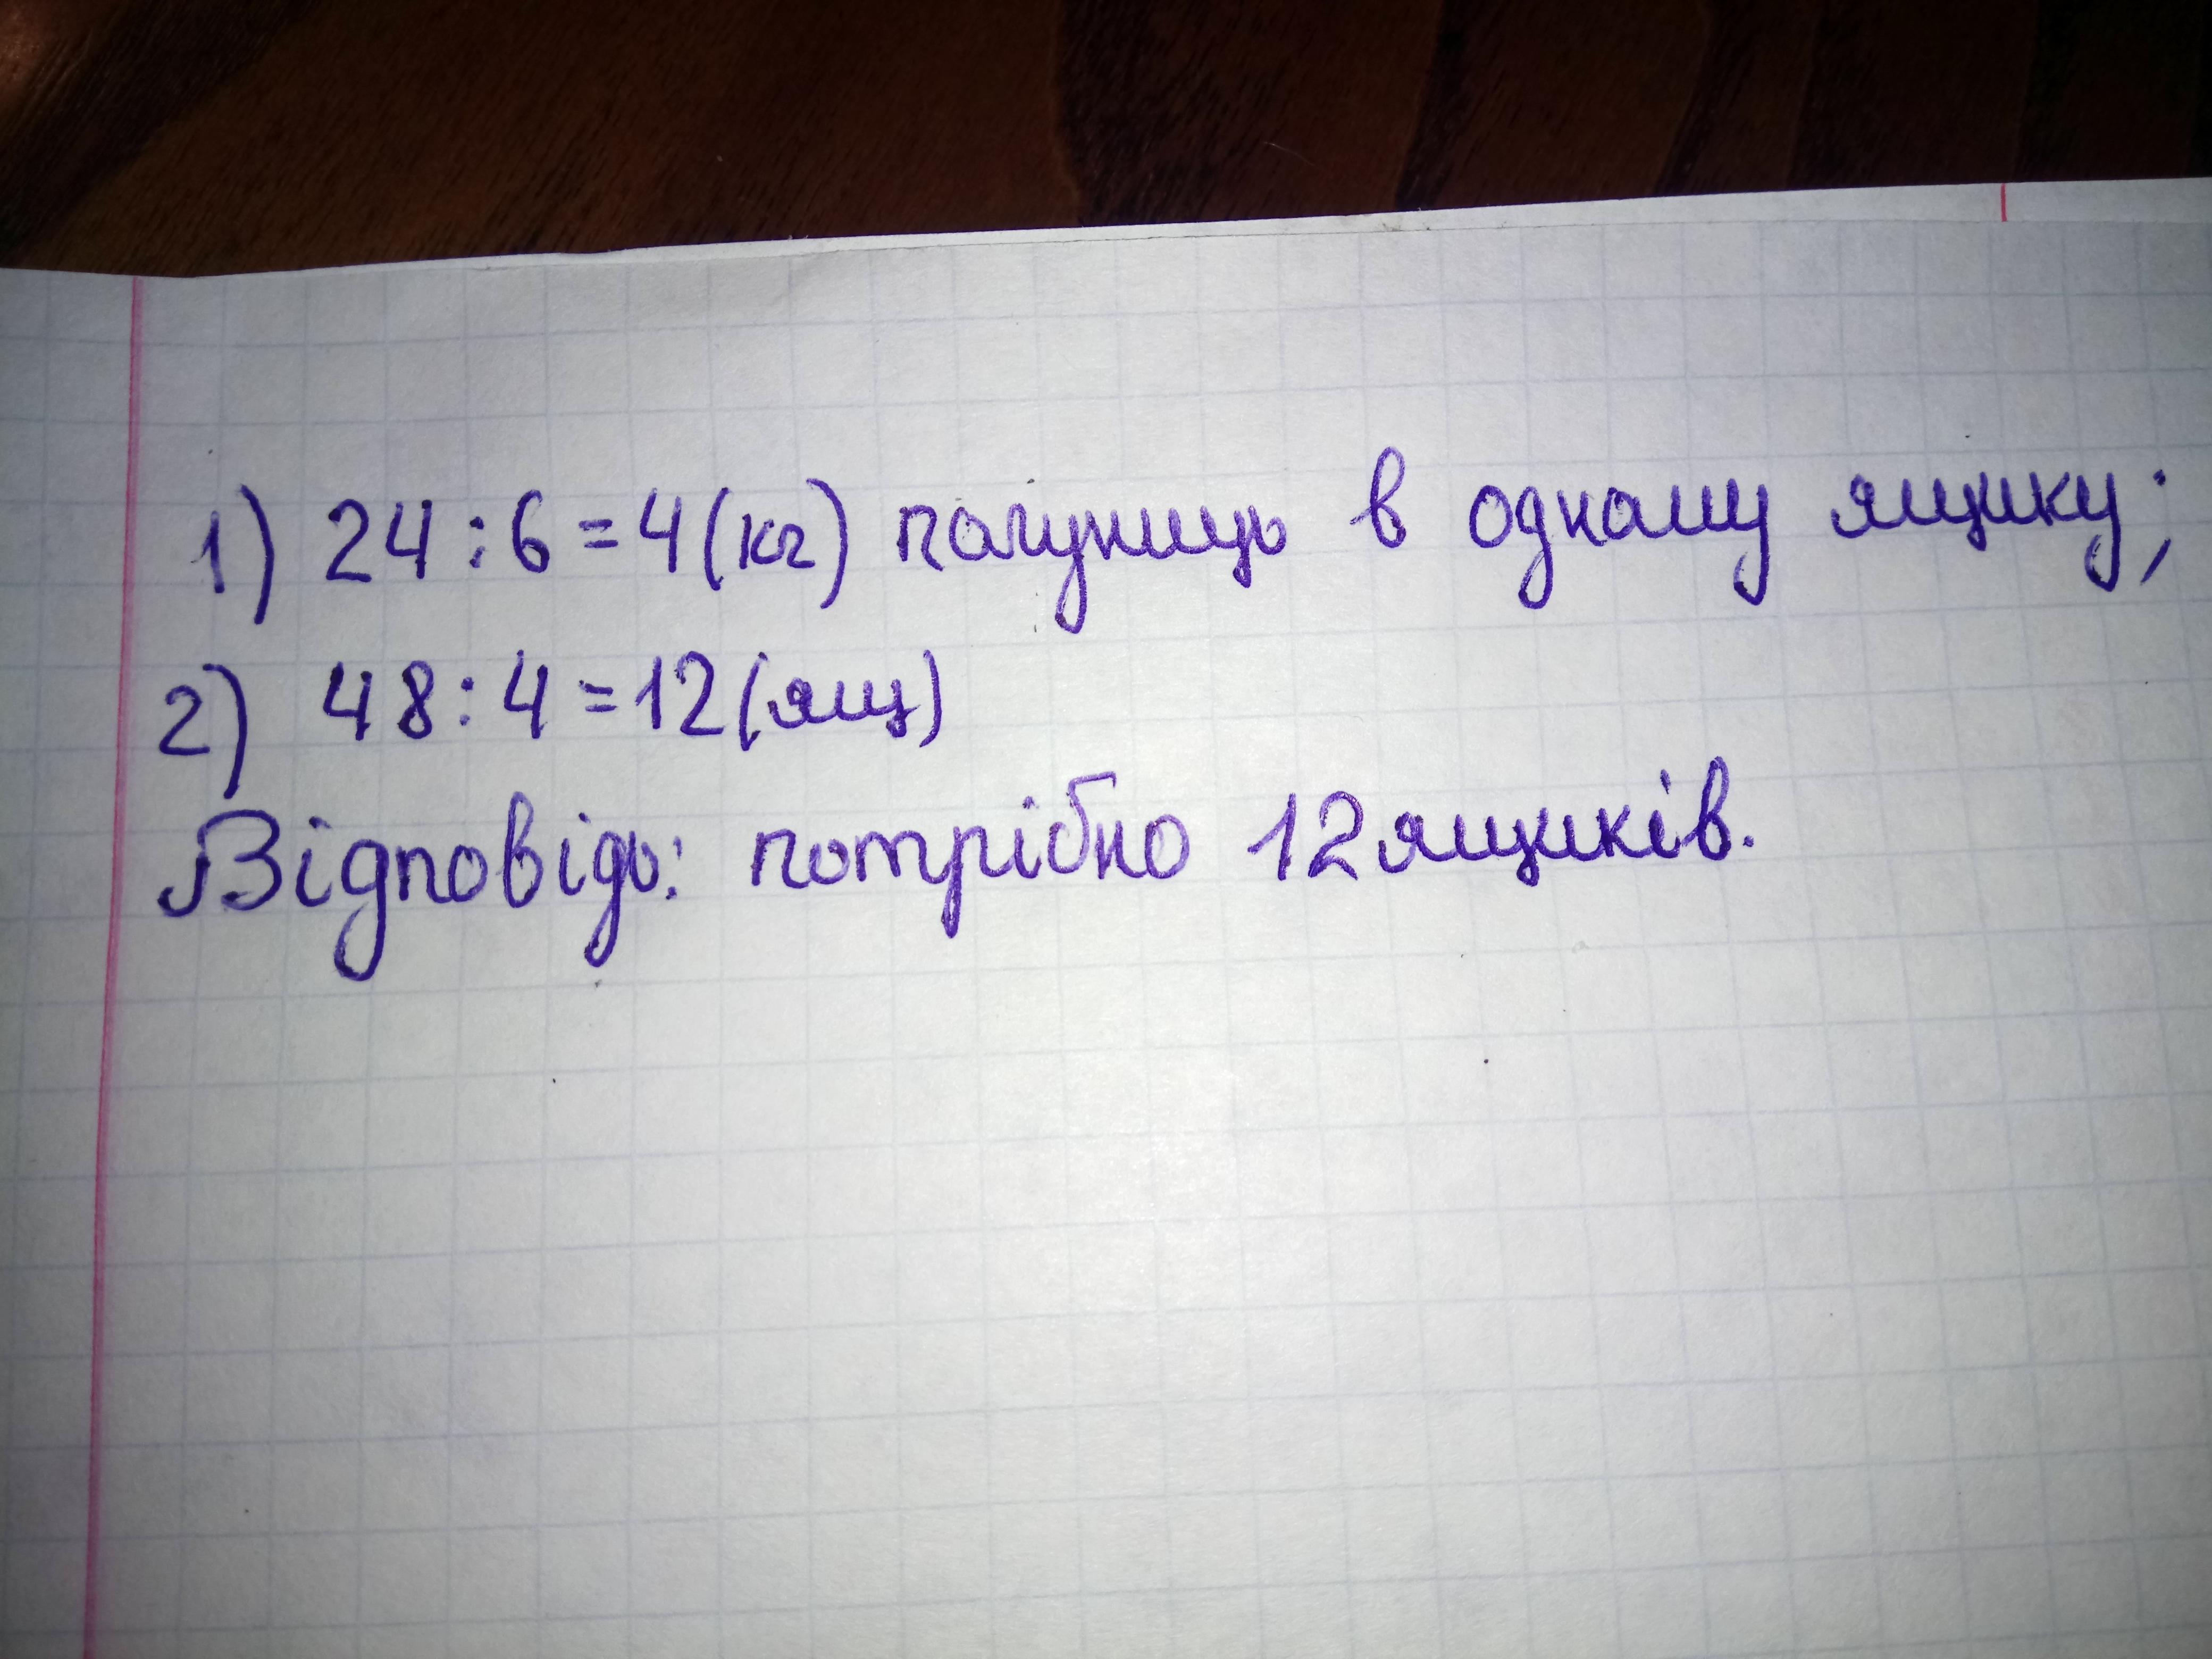 1) 24 : 6 = 4 (кг) полуниць в одному ящику;
2) 48 : 4 = 12 (ящ)
Відповідь: потрібно 12 ящиків.